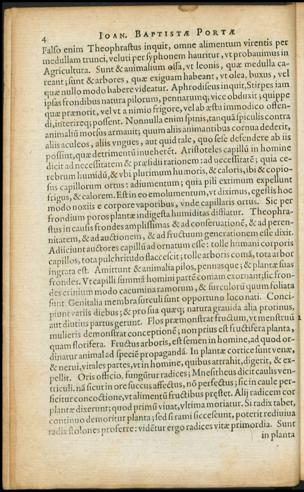 4 IOAN. BAPTISTÆ PORTÆ
Falso enim Theophrastus inquit, omne alimentum virentis per
medullam trunci, veluti per syphonem hauritur, vt probauimus in
Agricultura. Sunt & animalium ossa, vt leonis, quæ medulla ca-
reant; sunt & arbores, quæ exiguam habeant, vt olea, buxus, vel
quæ nullo modo habere videatur. Aphrodiseus inquit, Stirpes tam
ipsas frondibus natura pilorum, pennarumq; vice obduxit; quippe
quæ prænorit, vel vt a nimio frigore, vel ab æstu immodico offen-
di, interireq; possent. Nonnulla enim spinis, tanquā spiculis contra
animaliū morsus armauit; quum aliis animantibus cornua dederit,
aliis aculeos, aliis vngues, aut quid tale, quo sese defendere ab iis
possint, quæ detrimentū inueherēt. Aristoteles capillū in homine
dicit ad necessitatem & præsidii rationem: ad necessitatē; quia ce-
rebrum humidū, & vbi plurimum humoris, & caloris, ibi & copio-
sus capillorum ortus: adiumentum; quia pili eximium expellunt
frigus, & calorem. Est in eo emolumentum, vt diximus, egestis hoc
modo noxiis e corpore vaporibus, vnde capillaris ortus. Sic per
frondium poros plantæ indigesta humiditas distiatur. Theophra-
stus in causis frondes amplissimas & ad conseruationē, & ad peren-
nitatem, & ad auctionem, & ad fructuum generationem esse dixit.
Adiiciunt auctores capillū ad ornatum esse: tolle humani corporis
capillos, tota pulchritudo flaccescit; tolle arboris comā, tota arbor
ingrata est. Amittunt & animalia pilos, pennasque; & plantæ suas
frondes. Vt capilli summā hominis partē comam exornant; sic fron-
des etiam modo cacumina ramorum, & surculorū quum foliata
sunt. Genitalia membra surculi sunt opportuno loco nati. Conci-
piunt variis diebus; & pro sua quæq; natura grauida alia protinus,
aut diutius partus gerunt. Flos præmonstrat fructum, vt menstruū
mulieris demonstrat conceptionē; non prius est fructifera planta,
quam florifera. Fructus arboris, est semen in homine, ad quod or-
dinatur animal ad speciē propagandā. In plantæ cortice sunt venæ,
& nerui, vitales partes, vt in homine, quibus attrahit, digerit, & ex-
pellit. Oris officio, fungūtur radices; Mnesitheus dicit caulis ven-
triculi. nā sicut in ore succus affectus, nō perfectus; sic in caule per-
ficitur concoctione, vt alimentū fructibus præstet. Alij radicem cor
plantæ dixerunt; quod primū viuat, vltima moriatur. Si radix tabet,
continuo demoritur planta; sed si rami siccescunt, poterit rediuiua
radix stolones proferre: vidētur ergo radices vitæ primordia. Sunt
in planta